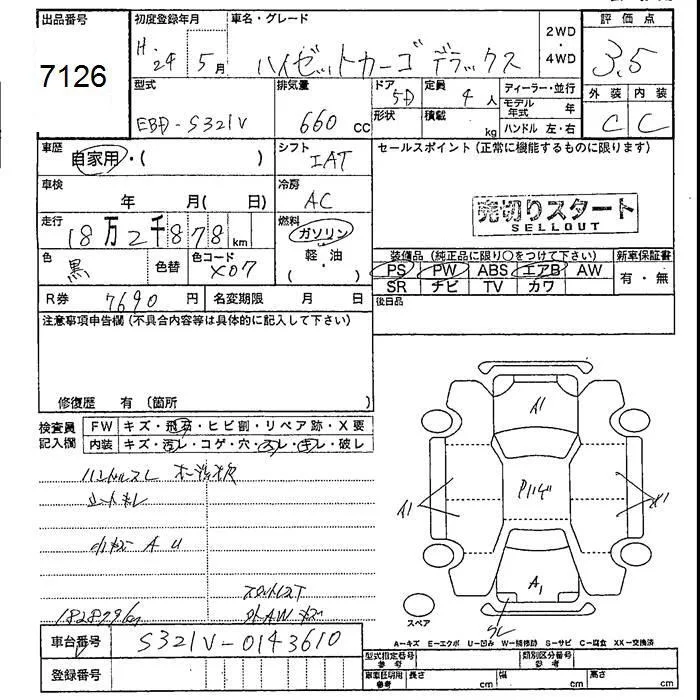 出品番号
7126
初度登録年月
H.24 5月
車名・グレード
ハイゼットカーゴ デラックス
2WD
・
4WD
評価点
3.5
外装 内装
C C
型式
EBD-S321V
排気量
660 cc
ドア 5D
形状
定員 4人
積載 kg
ディーラー・並行
モデル年式 年
ハンドル 左・右
車歴
自家用・( )
シフト
IAT
セールスポイント (正常に機能するものに限ります)
売切りスタート
SELLOUT
車検
年 月( 日)
冷房
AC
走行
18万2千878km
燃料
ガソリン
軽・油
( )
色
黒
色替
色コード
X07
装備品 (純正品に限り○をつけて下さい)
PS PW ABS エアB AW
SR ナビ TV カワ
新車保証書
有・無
後日品
R券 7690円
名変期限 月 日
注意事項申告欄 (不具合内容等は具体的に記入して下さい)
修復歴 有 (箇所 )
検査員
記入欄
FW キズ・飛石・ヒビ割・リペア跡・X要
内装 キズ・汚レ・コゲ・穴・スレ・キレ・破レ
ハンドルスレ
小キズ A U
182879km
外AWキズ
A1
A1
スペア
A-キズ E-エクボ U-凹み W-補修跡 S-サビ C-腐食 XX-交換済
車台番号
S321V-0143610
登録番号
型式指定番号
参考
類別区分番号
参考
車庫証明用
参考
長さ cm
幅 cm
高さ cm